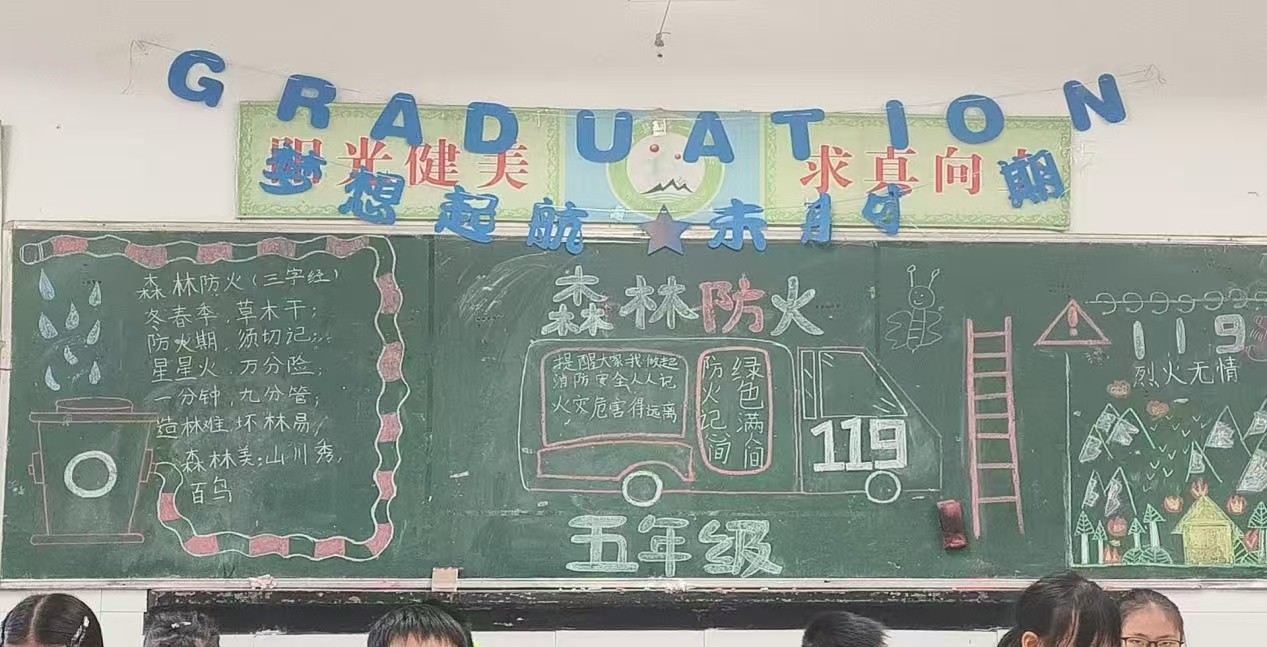 GRADUATION
阳光健美 求真向
梦想起航 未时可期
森林防火(三字经)
冬春季,草木干;
防火期,须切记;
星星火,万分险;
一分钟,九分管;
造林难,坏林易;
森林美;山川秀,
百鸟
森林防火
提醒大家我做起
消防安全人人记
火灾危害得远离
防火记间
绿色满人间
119
五年级
119
烈火无情